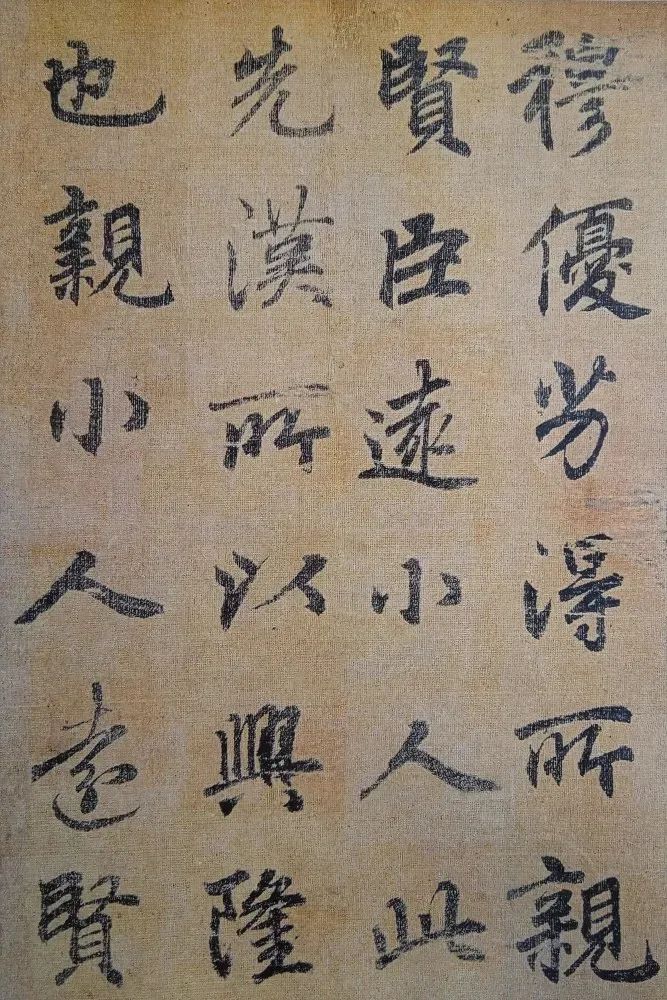 穆優劣得所親
賢臣遠小人此
先漢所以興隆
也親小人遠賢